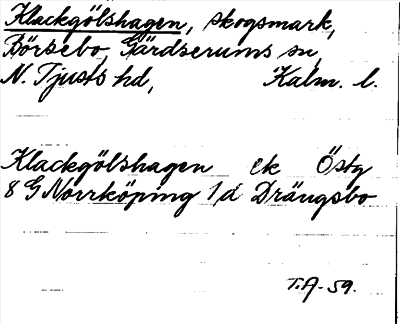 Klackgölshagen, skogsmark,
Börsebo, Gärdserums sn,
N. Tjusts hd, Kalm. l.
Klackgölshagen ek Östg
8 G Norrköping 1/d Drängsbo
T.A-59.